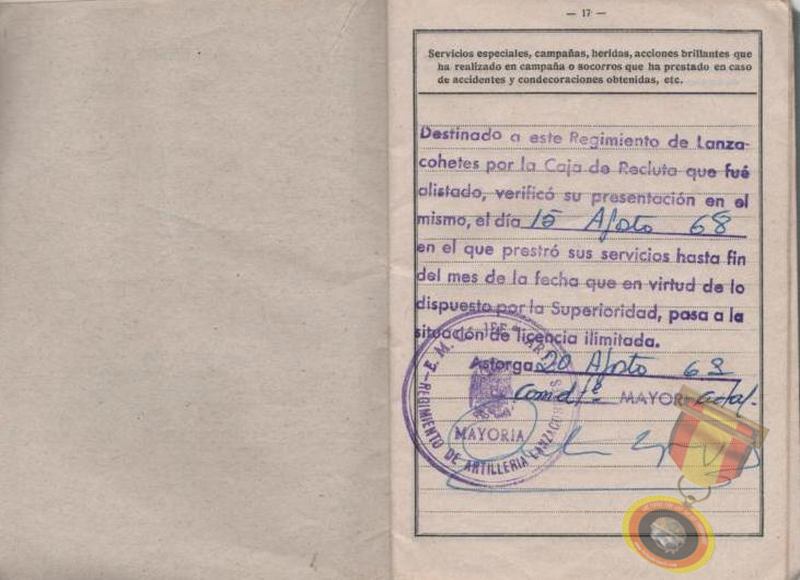 — 17 —
Servicios especiales, campañas, heridas, acciones brillantes que
ha realizado en campaña o socorros que ha prestado en caso
de accidentes y condecoraciones obtenidas, etc.
Destinado a este Regimiento de Lanza-
cohetes por la Caja de Recluta que fué
alistado, verificó su presentación en el
mismo, el día 15 Agosto 68
en el que prestró sus servicios hasta fin
del mes de la fecha que en virtud de lo
dispuesto por la Superioridad, pasa a la
situación de licencia ilimitada.
Astorga 20 Agosto 69
Comdte MAYOR actal.
REGIMIENTO DE ARTILLERIA LANZACOHETES
MAYORIA